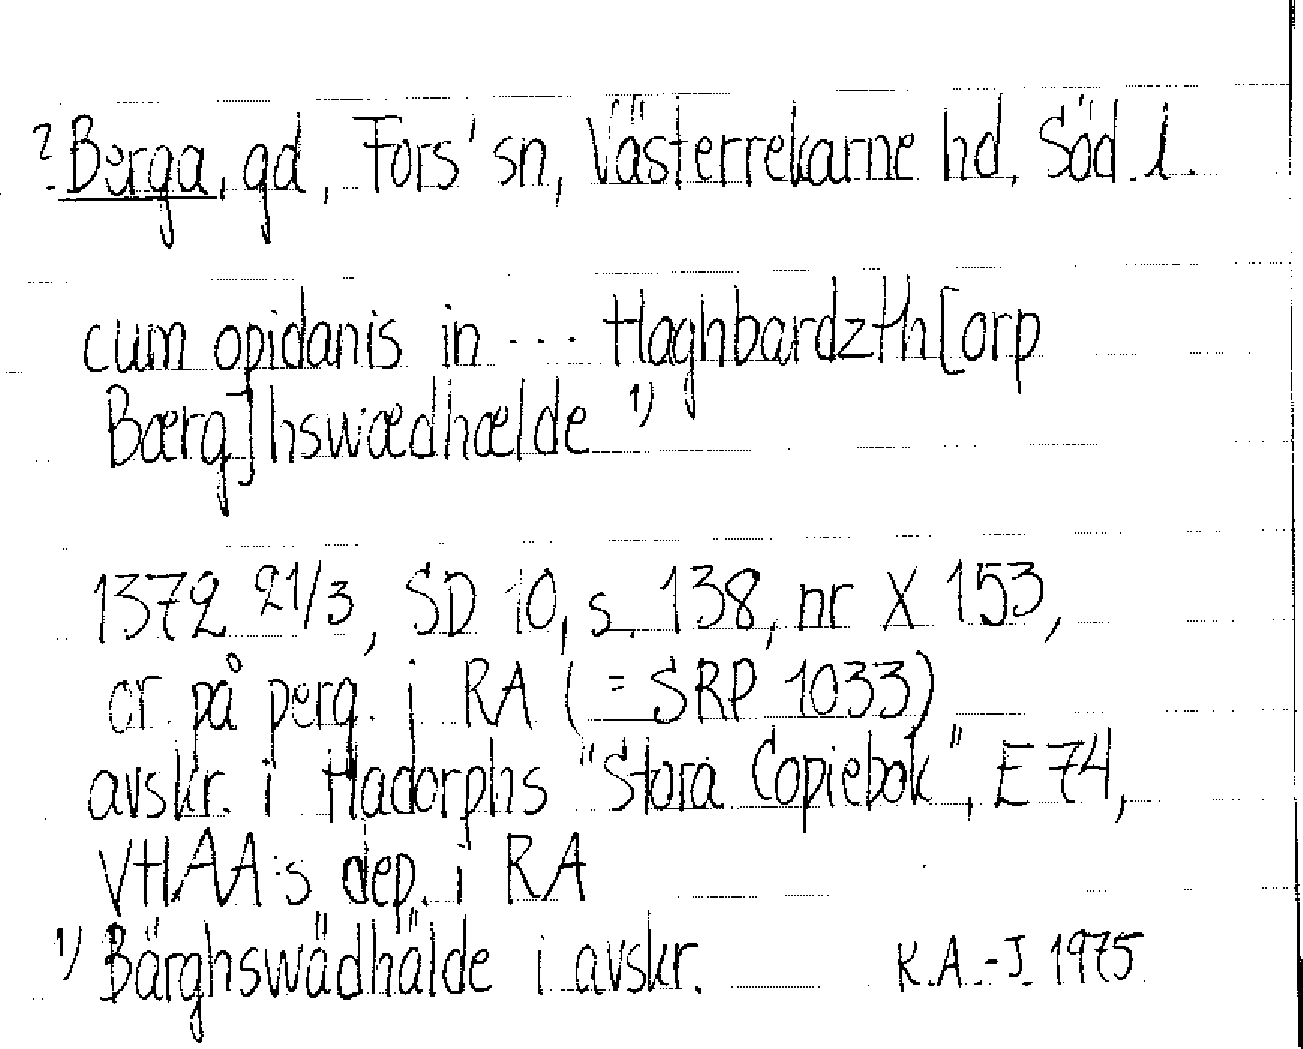 ? Berga, gd, Fors' sn, Västerrekarne hd, Söd. l.
cum opidanis in ... Haghbardzth[orp
Bærg]hswædhælde 1)
1372 21/3, SD 10, s. 138, nr X 153,
or. på perg. i RA (= SRP 1033)
avskr. i Hadorphs "Stora Copiebok", E 74,
VHAA:s dep. i RA
1) Bärghswädhälde i avskr. K.A.-J. 1975